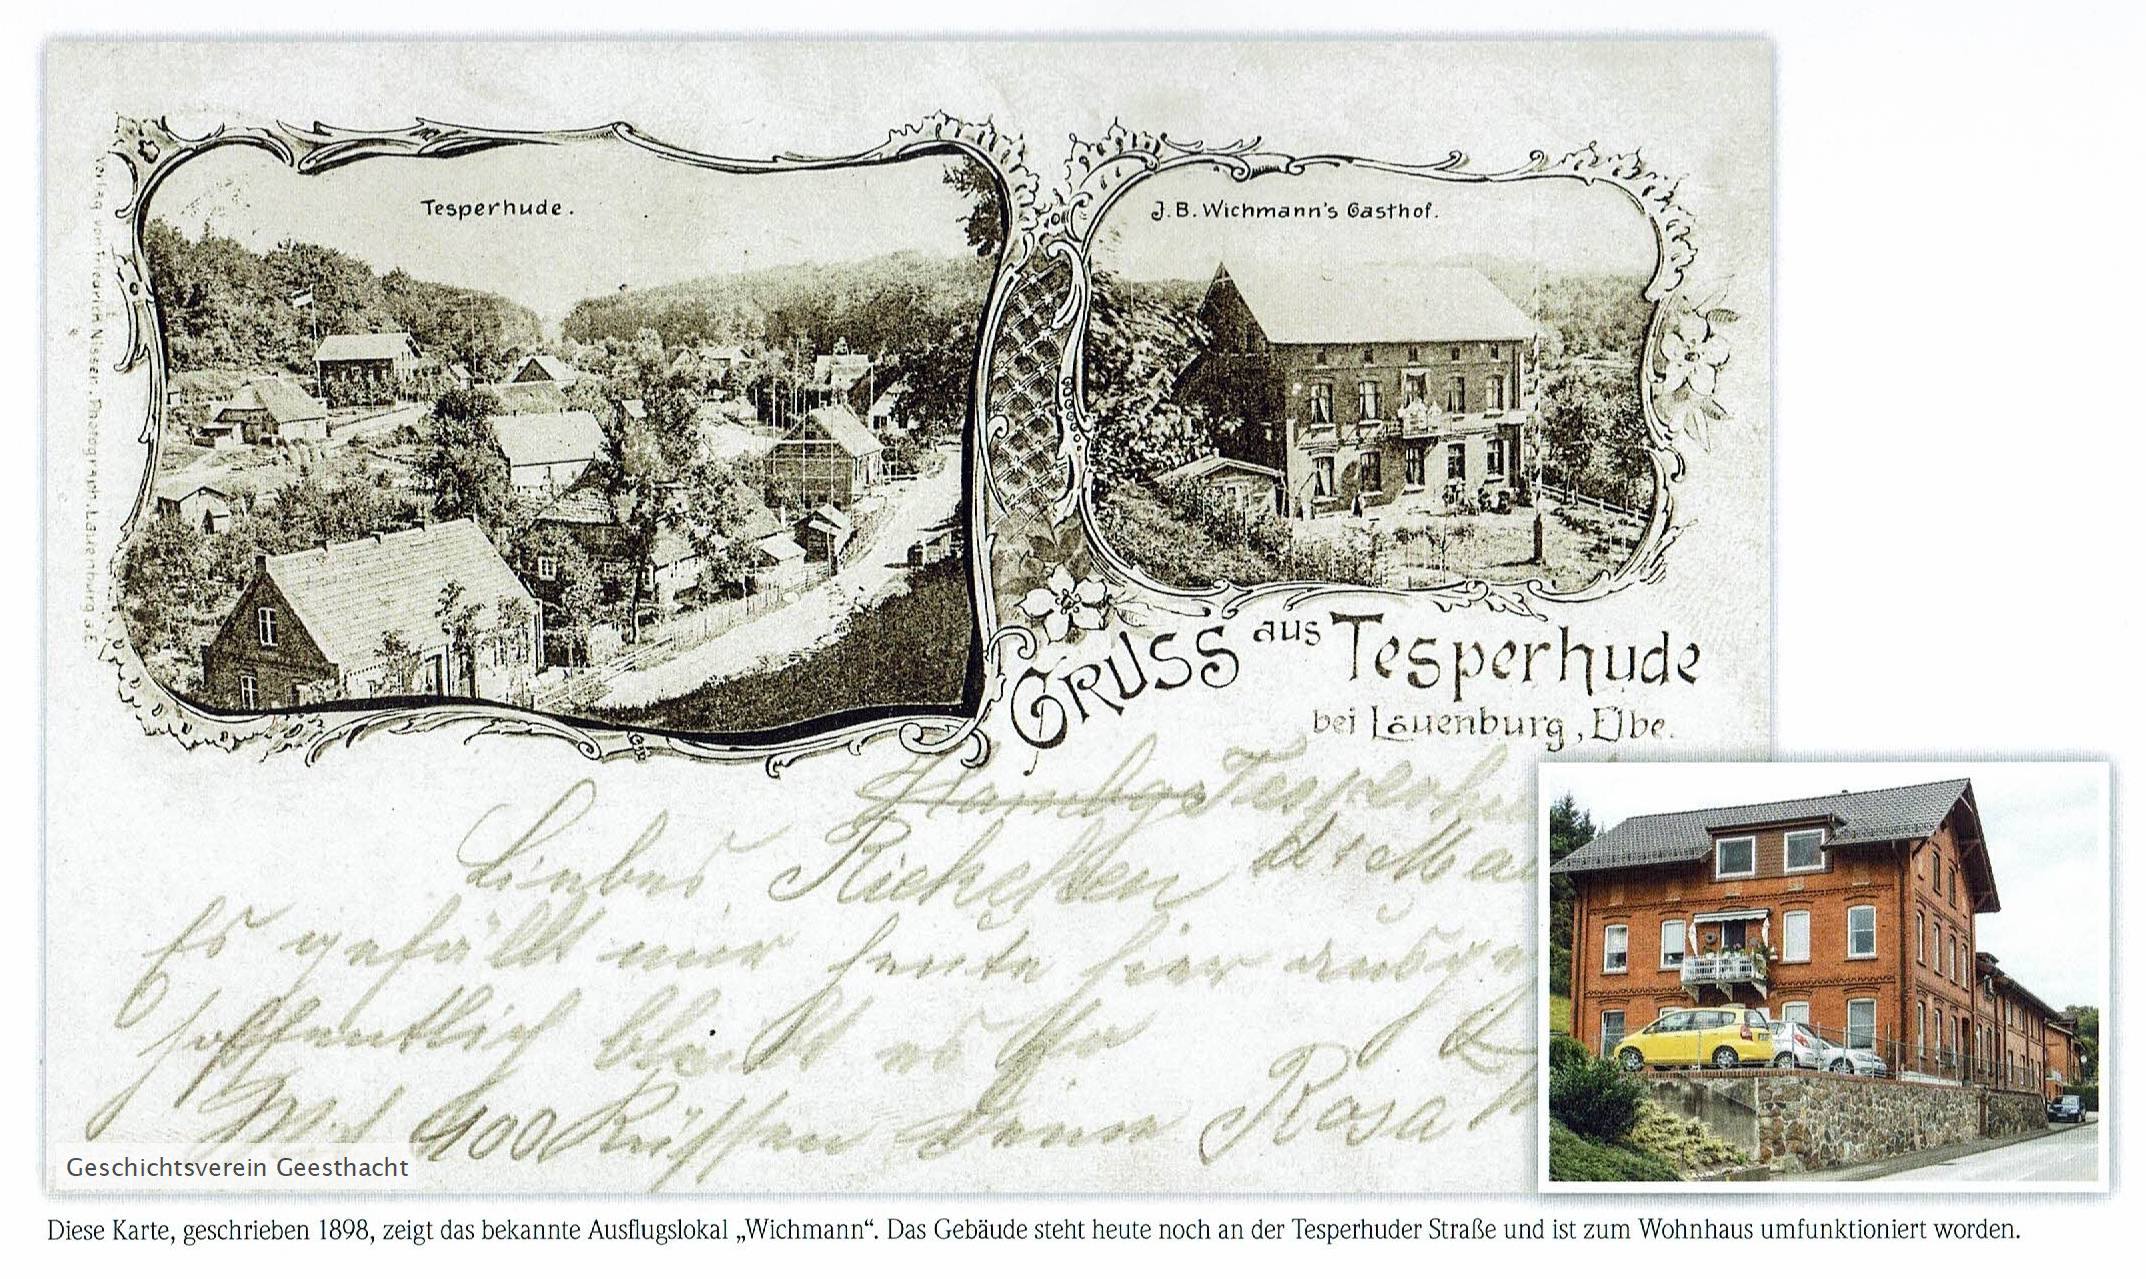 Tesperhude.
J. B. Wichmann's Gasthof.
Verlag von Friedrich Nissen, Photograph, Lauenburg a. E.
GRUSS aus Tesperhude
bei Lauenburg, Elbe.
Tesperhu
Liebes Riekchen
Es gefällt mir heute hier
hoffentlich bleibt es so
Mit 400 Küssen Deine Rosa
Geschichtsverein Geesthacht
Diese Karte, geschrieben 1898, zeigt das bekannte Ausflugslokal „Wichmann“. Das Gebäude steht heute noch an der Tesperhuder Straße und ist zum Wohnhaus umfunktioniert worden.